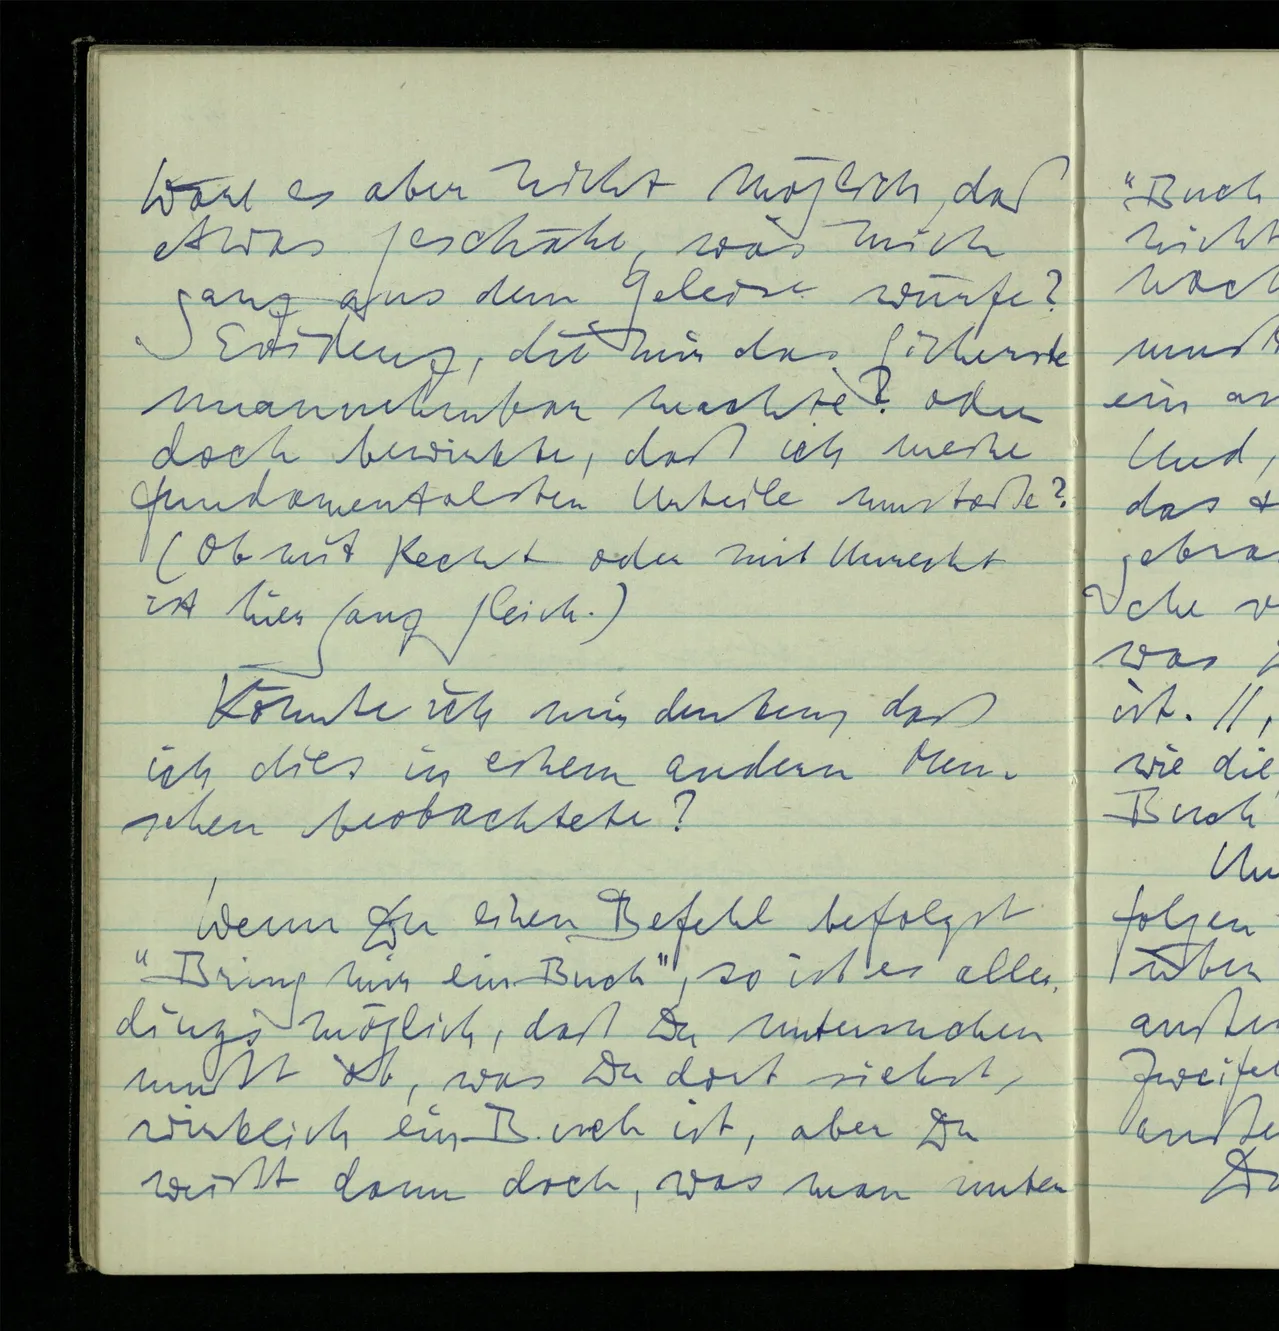 Wäre es aber nicht möglich, daß
etwas geschähe, was mich
ganz aus dem Geleise würfe?
Evidenz, die mir das Sicherste
unannehmbar machte? oder
doch bewirkte, daß ich meine
fundamentalsten Urteile umstoße?
(Ob mit Recht oder mit Unrecht
ist hier ganz gleich.)
Könnte ich mir denken, daß
ich dies in einem andern Men-
schen beobachtete?
Wenn Du einen Befehl befolgst
"Bring mir ein Buch", so ist es aller-
dings möglich, daß Du untersuchen
mußt ob, was Du dort siehst,
wirklich ein Buch ist, aber Du
weißt dann doch, was man unter
"Buch
nicht
noch
muß
ein an
Und,
das
gebra
che v
was
ist. //,
wie die
Buch
folgen
über
außer
Zweifel
auße